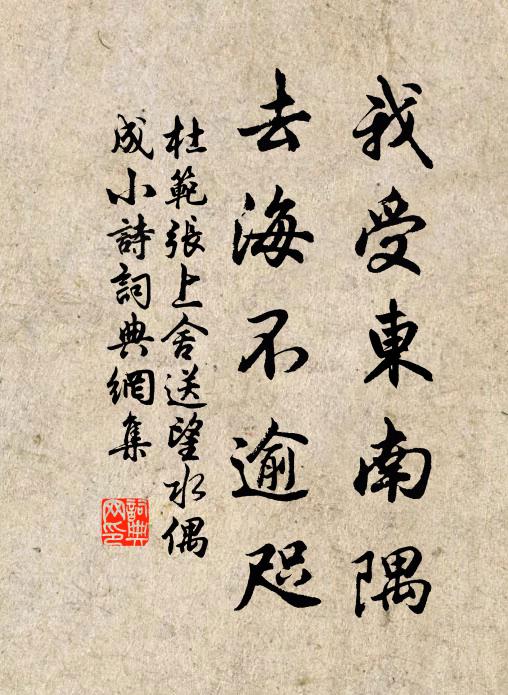 我受東南隅
去海不逾咫
杜範張上舍送望水偶
成小詩詞典網集
詞典
网印